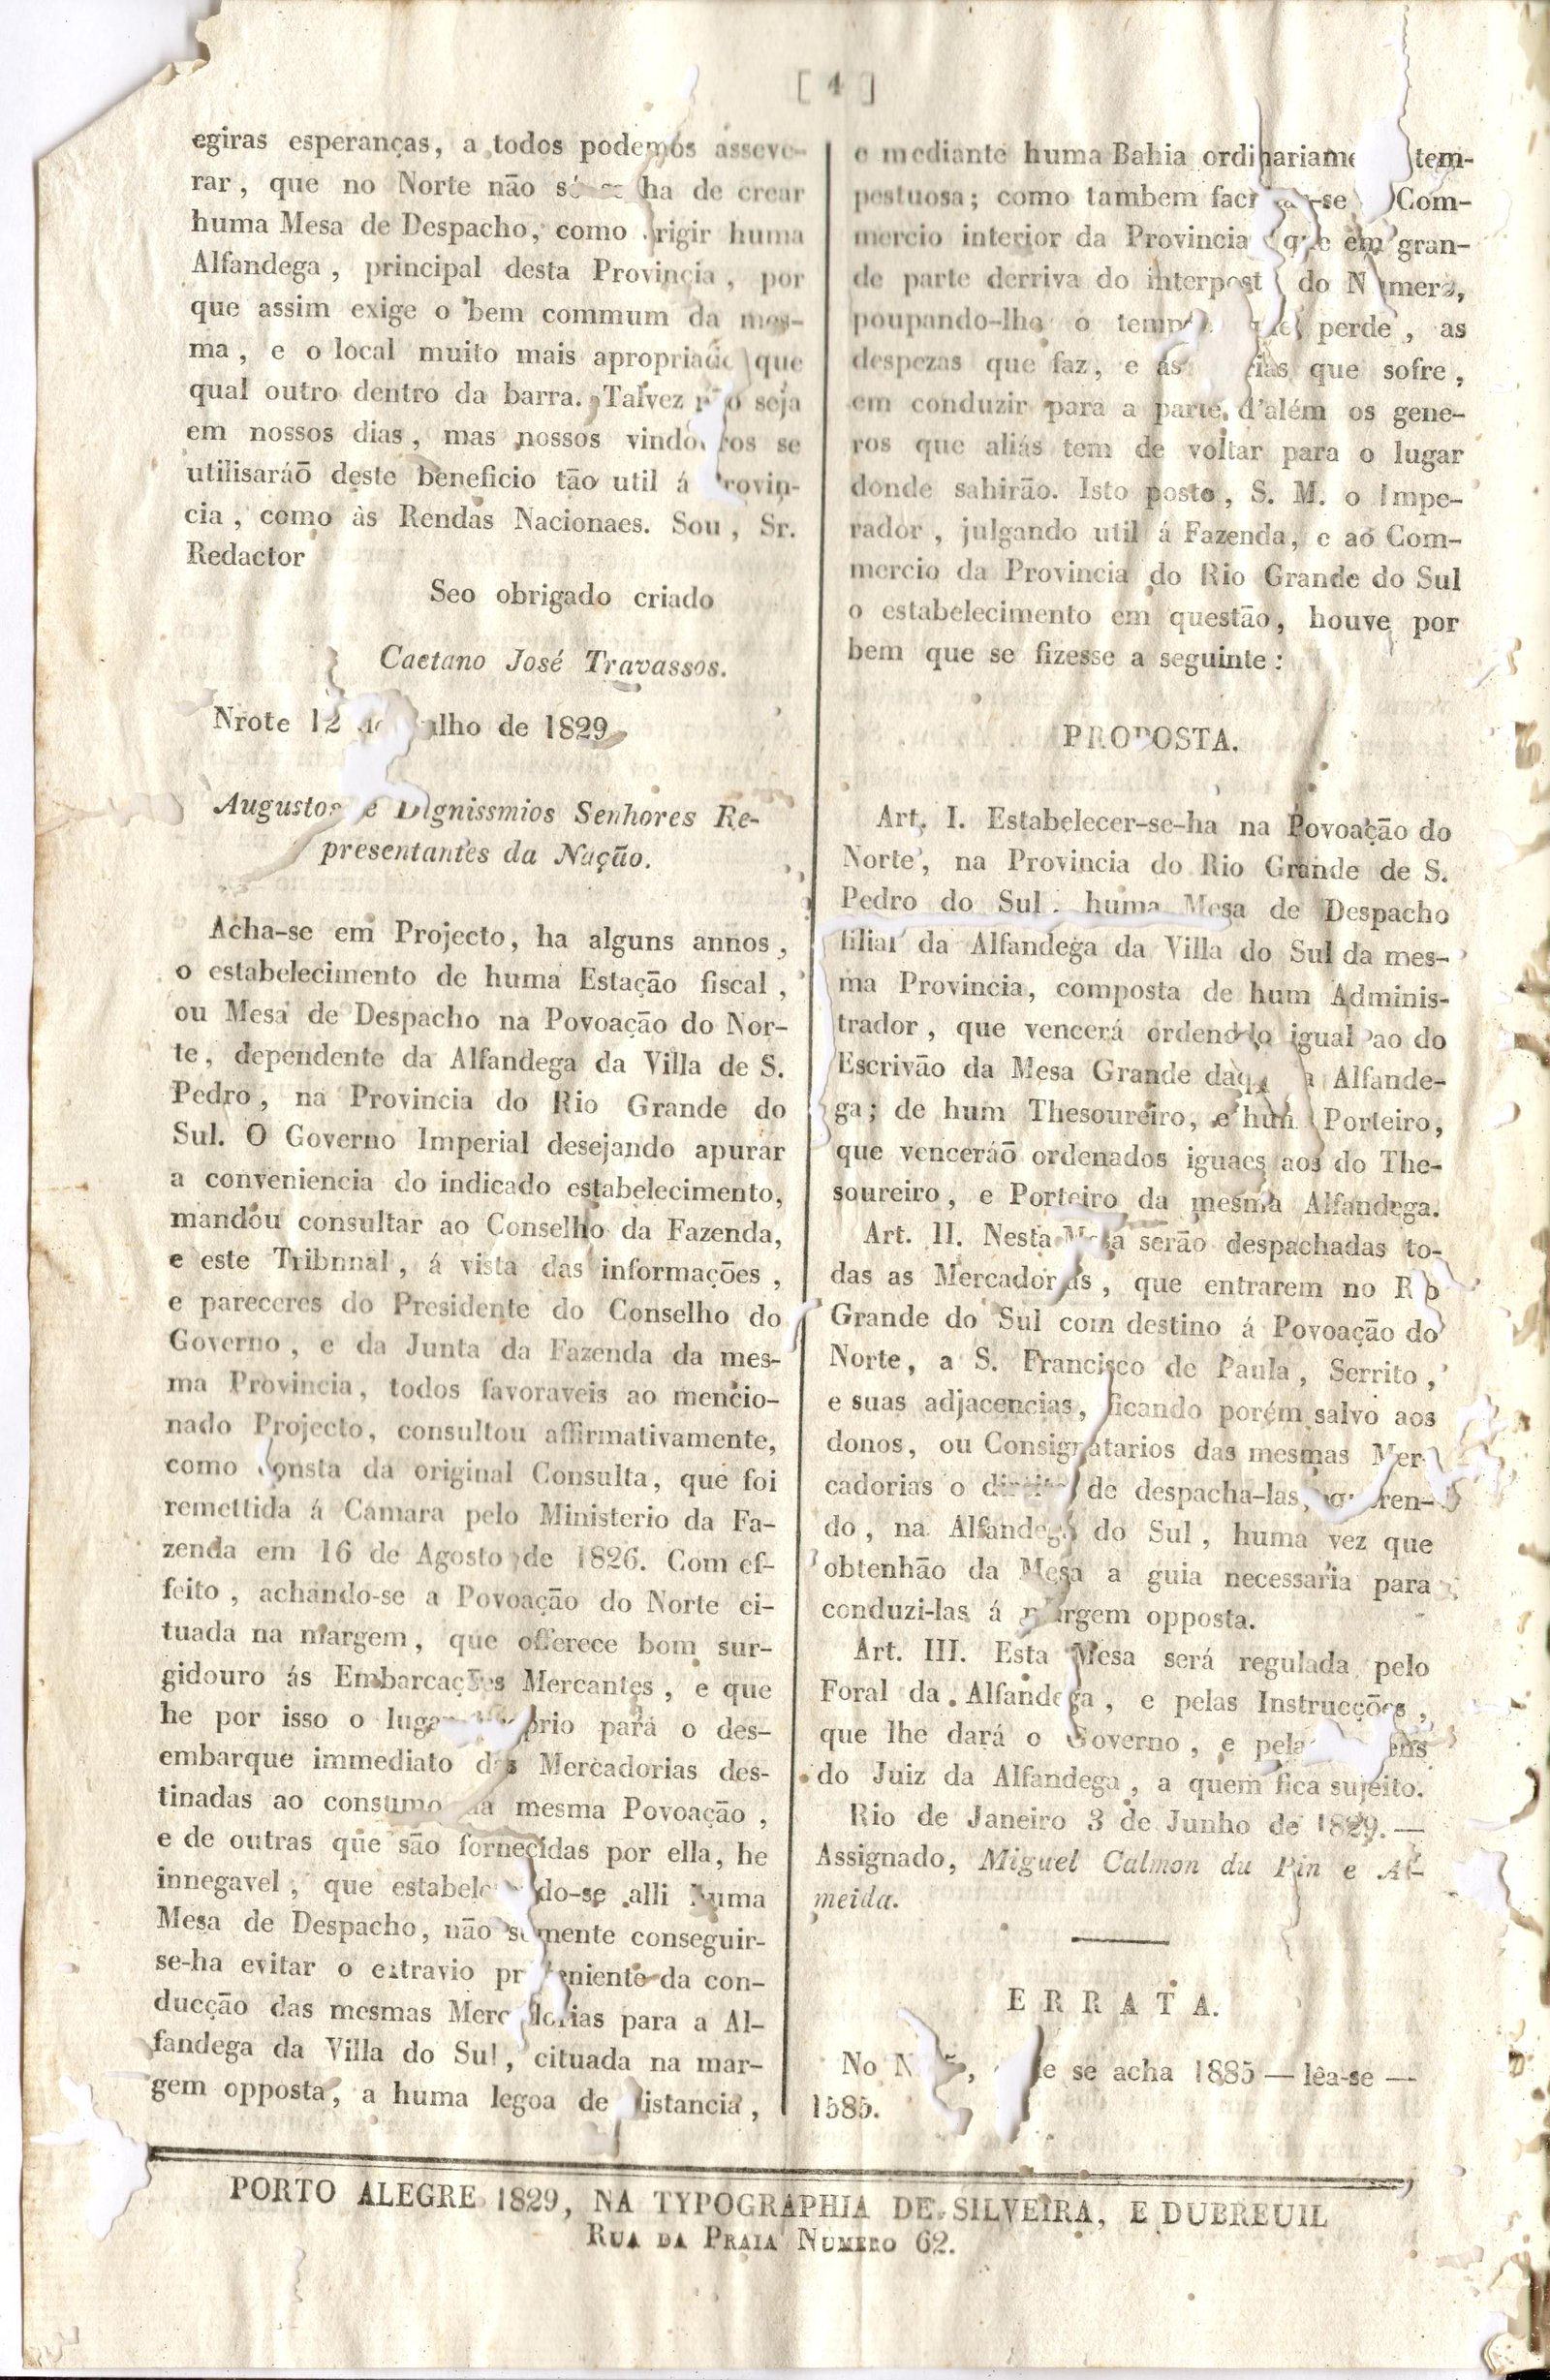 [ 4 ]
egiras esperanças, a todos podemos asseve-
rar, que no Norte não ha de crear
huma Mesa de Despacho, como rigir huma
Alfandega, principal desta Provincia, por
que assim exige o bem commum da mes-
ma, e o local muito mais apropriado que
qual outro dentro da barra. Talvez não seja
em nossos dias, mas nossos vindouros se
utilisaráõ deste beneficio tão util á Provin-
cia, como às Rendas Nacionaes. Sou, Sr.
Redactor
Seo obrigado criado
Caetano José Travassos.
Nrote 12 de Julho de 1829
Augustos e Dignissmios Senhores Re-
presentantes da Nação.
Acha-se em Projecto, ha alguns annos,
o estabelecimento de huma Estação fiscal,
ou Mesa de Despacho na Povoação do Nor-
te, dependente da Alfandega da Villa de S.
Pedro, na Provincia do Rio Grande do
Sul. O Governo Imperial desejando apurar
a conveniencia do indicado estabelecimento,
mandou consultar ao Conselho da Fazenda,
e este Tribnnal, á vista das informações,
e pareceres do Presidente do Conselho do
Governo, e da Junta da Fazenda da mes-
ma Provincia, todos favoraveis ao mencio-
nado Projecto, consultou affirmativamente,
como consta da original Consulta, que foi
remettida á Camara pelo Ministerio da Fa-
zenda em 16 de Agosto de 1826. Com ef-
feito, achando-se a Povoação do Norte ci-
tuada na margem, que offerece bom sur-
gidouro ás Embarcações Mercantes, e que
he por isso o lugar proprio para o des-
embarque immediato das Mercadorias des-
tinadas ao consumo da mesma Povoação,
e de outras que são fornecidas por ella, he
innegavel, que estabelecendo-se alli huma
Mesa de Despacho, não somente conseguir-
se-ha evitar o extravio proveniente da con-
ducção das mesmas Mercadorias para a Al-
fandega da Villa do Sul, cituada na mar-
gem opposta, a huma legoa de distancia,
e mediante huma Bahia ordinariamente tem-
pestuosa; como tambem facilitar-se Com-
mercio interior da Provincia que em gran-
de parte derriva do interposto do Numero,
poupando-lhe o tempo que perde, as
despezas que faz, e as que sofre,
em conduzir para a parte d'além os gene-
ros que aliás tem de voltar para o lugar
donde sahirão. Isto posto, S. M. o Impe-
rador, julgando util á Fazenda, e ao Com-
mercio da Provincia do Rio Grande do Sul
o estabelecimento em questão, houve por
bem que se fizesse a seguinte:
PROPOSTA.
Art. I. Estabelecer-se-ha na Povoação do
Norte, na Provincia do Rio Grande de S.
Pedro do Sul, huma Mesa de Despacho
filial da Alfandega da Villa do Sul da mes-
ma Provincia, composta de hum Adminis-
trador, que vencerá ordenado igual ao do
Escrivão da Mesa Grande daquella Alfande-
ga; de hum Thesoureiro, e hum Porteiro,
que venceráõ ordenados iguaes aos do The-
soureiro, e Porteiro da mesma Alfandega.
Art. II. Nesta Mesa serão despachadas to-
das as Mercadorias, que entrarem no Rio
Grande do Sul com destino á Povoação do
Norte, a S. Francisco de Paula, Serrito,
e suas adjacencias, ficando porém salvo aos
donos, ou Consignatarios das mesmas Mer-
cadorias o direito de despacha-las, queren-
do, na Alfandega do Sul, huma vez que
obtenhão da Mesa a guia necessaria para
conduzi-las á margem opposta.
Art. III. Esta Mesa será regulada pelo
Foral da Alfandega, e pelas Instrucções,
que lhe dará o Governo, e pelas ordens
do Juiz da Alfandega, a quem fica sujeito.
Rio de Janeiro 3 de Junho de 1829. —
Assignado, Miguel Calmon du Pin e Al-
meida.
ERRATA.
No se acha 1885 — lêa-se —
1585.
PORTO ALEGRE 1829, NA TYPOGRAPHIA DE SILVEIRA, E DUBREUIL
RUA DA PRAIA NUMERO 62.